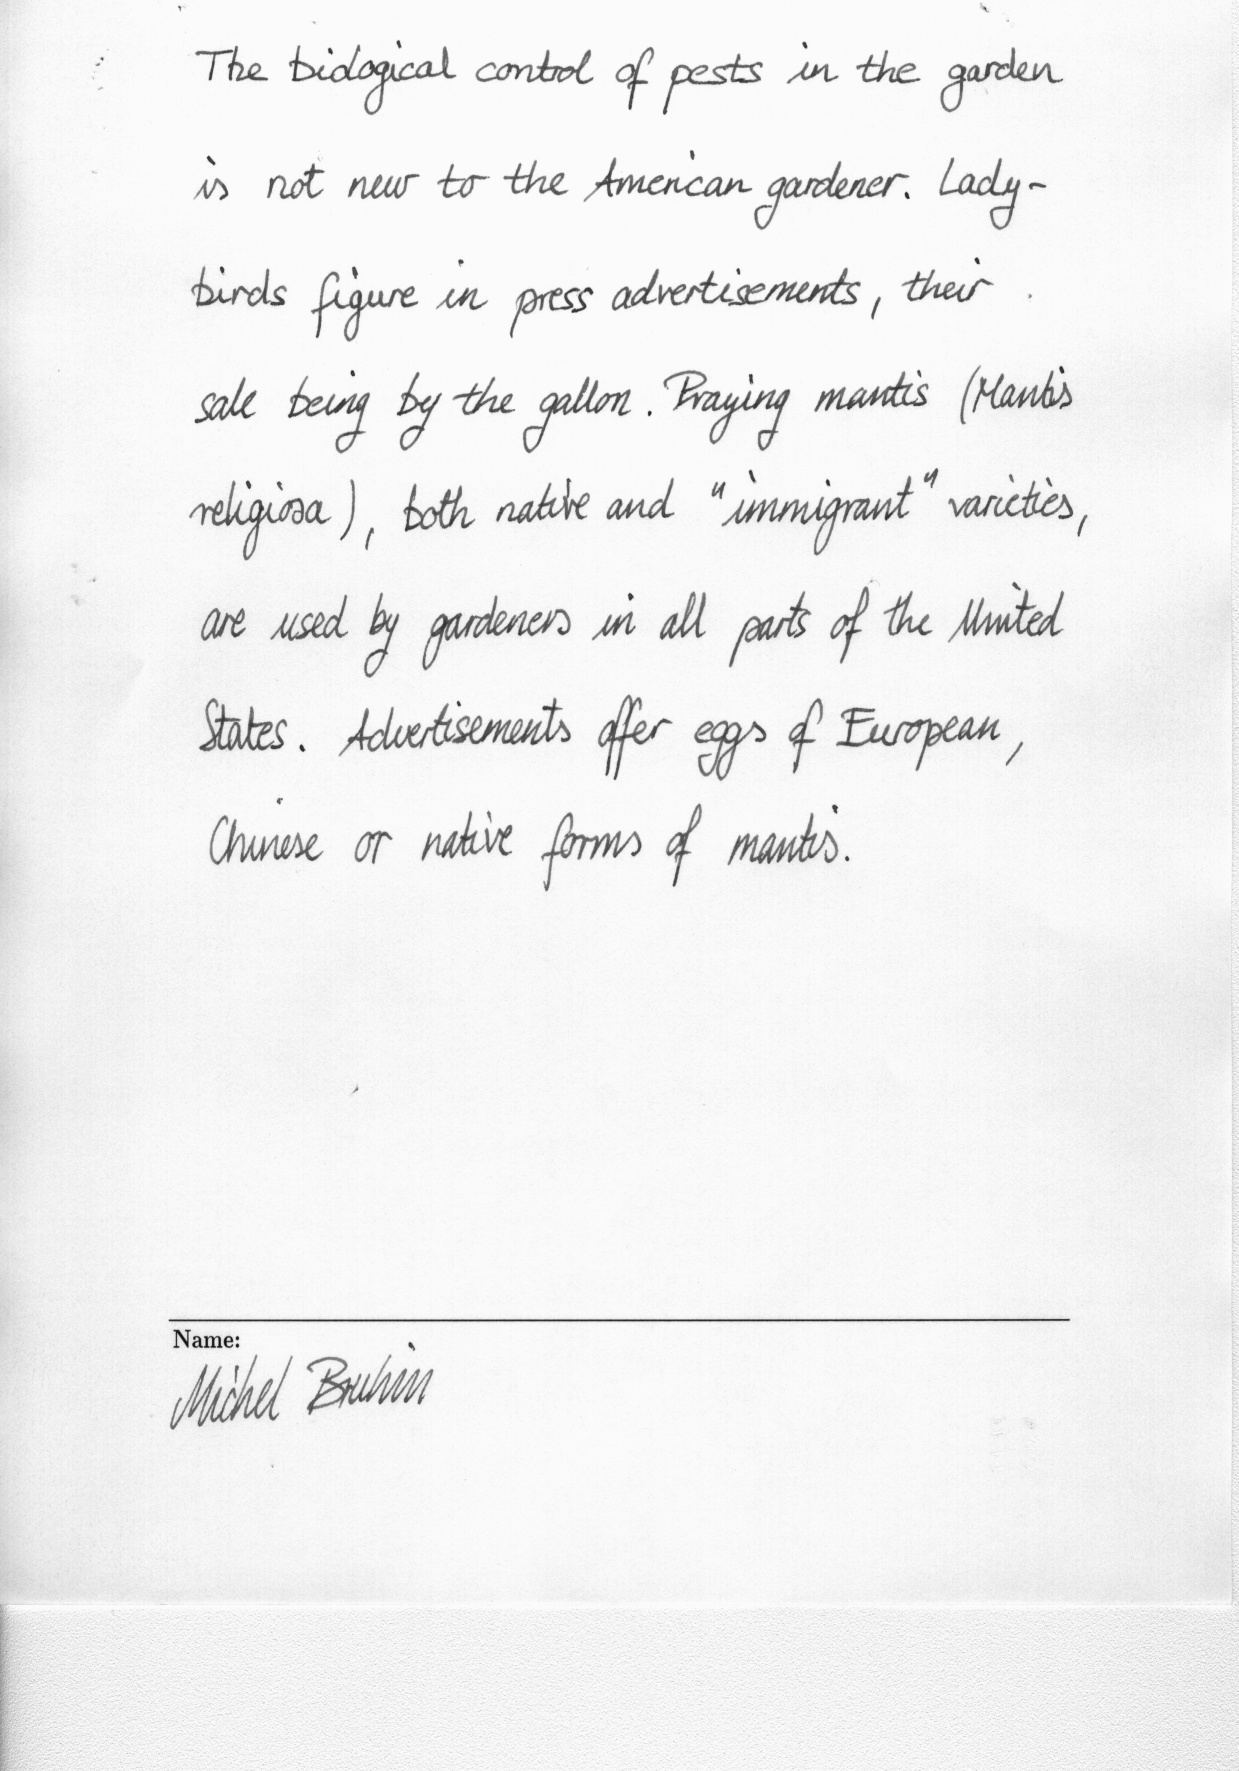 The biological control of pests in the garden
is not new to the American gardener. Lady-
birds figure in press advertisements, their
sale being by the gallon. Praying mantis (Mantis
religiosa), both native and "immigrant" varieties,
are used by gardeners in all parts of the United
States. Advertisements offer eggs of European,
Chinese or native forms of mantis.
Name:
Michel Bruhin